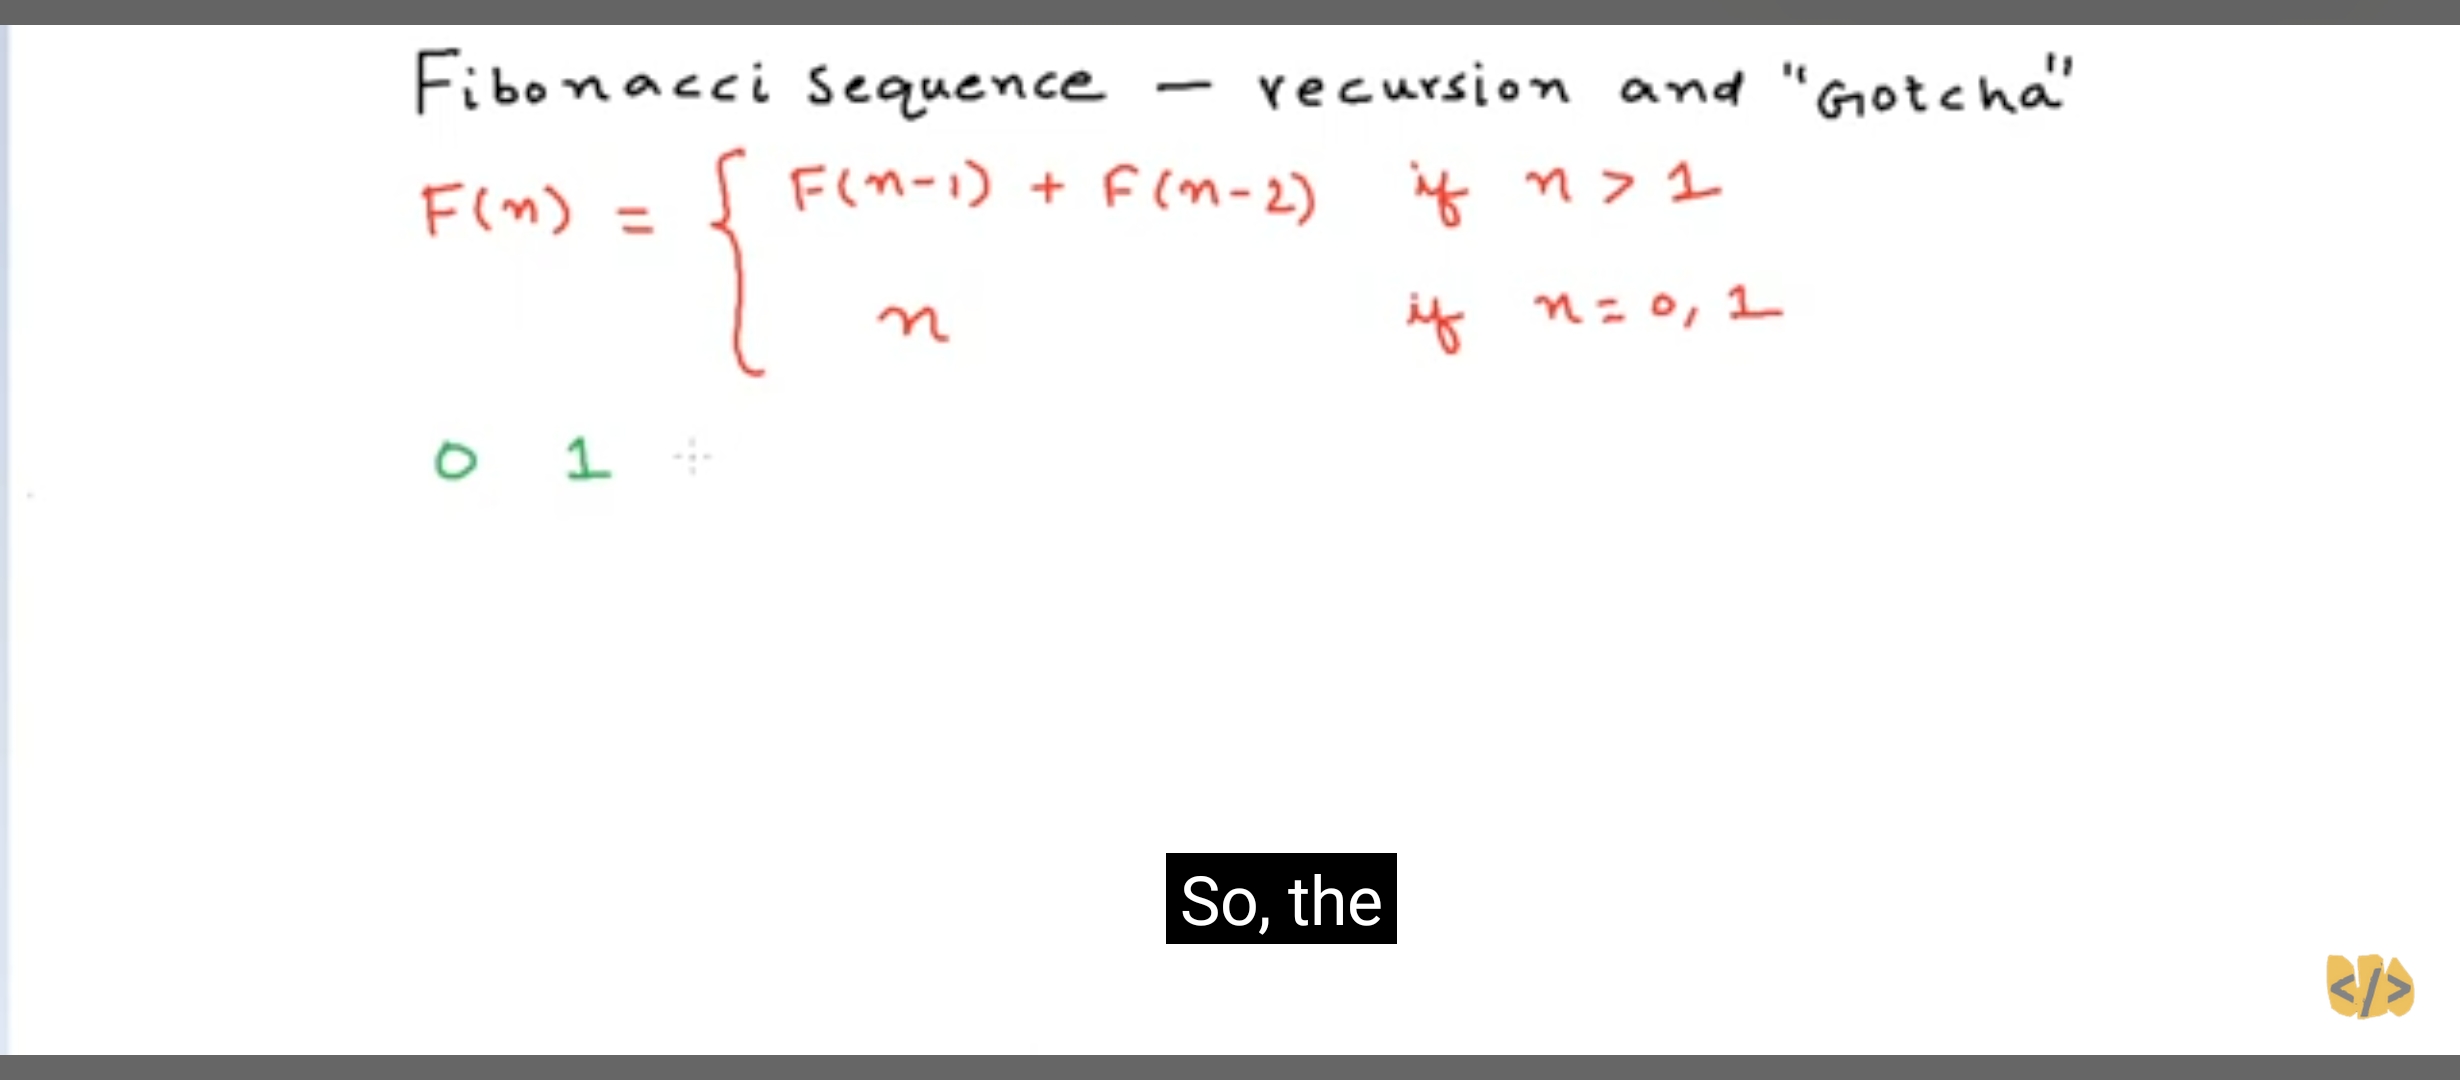 Fibonacci sequence — recursion and "Gotcha"
F(n) = { F(n-1) + F(n-2) if n > 1
n if n = 0, 1
0 1
So, the
</>